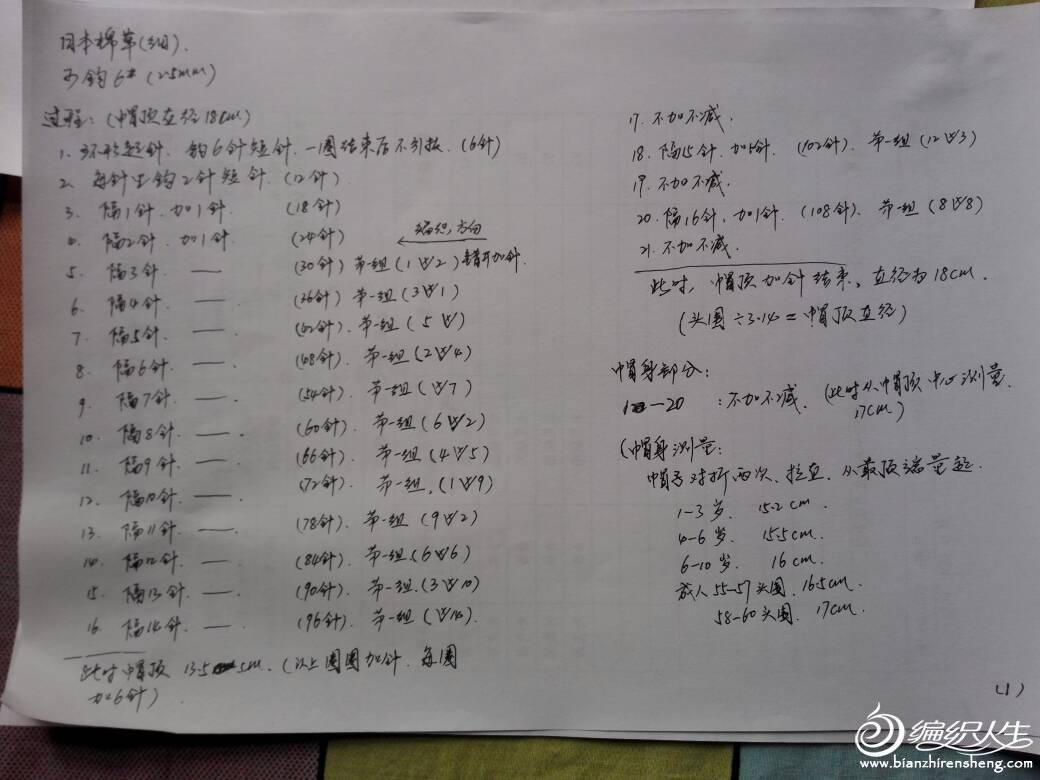 日本棉草(细).
可钩6#(2.5mm)
过程:(帽顶直径18cm)
1. 环形起针. 钩6针短针. 一圈结束后不引拔. (6针)
2. 每针里钩2针短针. (12针).
3. 隔1针. 加1针. (18针)
4. 隔2针. 加1针. (24针) 编织方向
5. 隔3针. — (30针) 第一组(1\V/2)错开加针.
6. 隔4针. — (36针) 第一组(3\V/1)
7. 隔5针. — (42针). 第一组(5\V/)
8. 隔6针. — (48针). 第一组(2\V/4)
9. 隔7针. — (54针). 第一组(\V/7)
10. 隔8针. — (60针). 第一组(6\V/2)
11. 隔9针. — (66针). 第一组(4\V/5)
12. 隔10针. — (72针). 第一组.(1\V/9)
13. 隔11针. — (78针). 第一组(9\V/2)
14. 隔12针. — (84针). 第一组.(6\V/6)
15. 隔13针. — (90针). 第一组.(3\V/10)
16. 隔14针. — (96针). 第一组(\V/14).
此时帽顶 13.5cm. (以上圈圈加针. 每圈
加6针).
17. 不加不减.
18. 隔15针. 加1针. (102针). 第一组(12\V/3)
19. 不加不减.
20. 隔16针. 加1针. (108针). 第一组(8\V/8)
21. 不加不减.
此时, 帽顶加针结束. 直径为18cm.
(头围÷3.14=帽顶直径)
帽身部分:
1—20 : 不加不减. (此时从帽顶中心测量
17cm)
(帽身测量:
帽子对折两次. 拉直. 从最顶端量起.
1-3岁. 15.2cm.
4-6岁. 15.5cm.
6-10岁. 16cm.
成人55-57头围. 16.5cm.
58-60头围. 17cm.
(1)
编织人生
www.bianzhirensheng.com